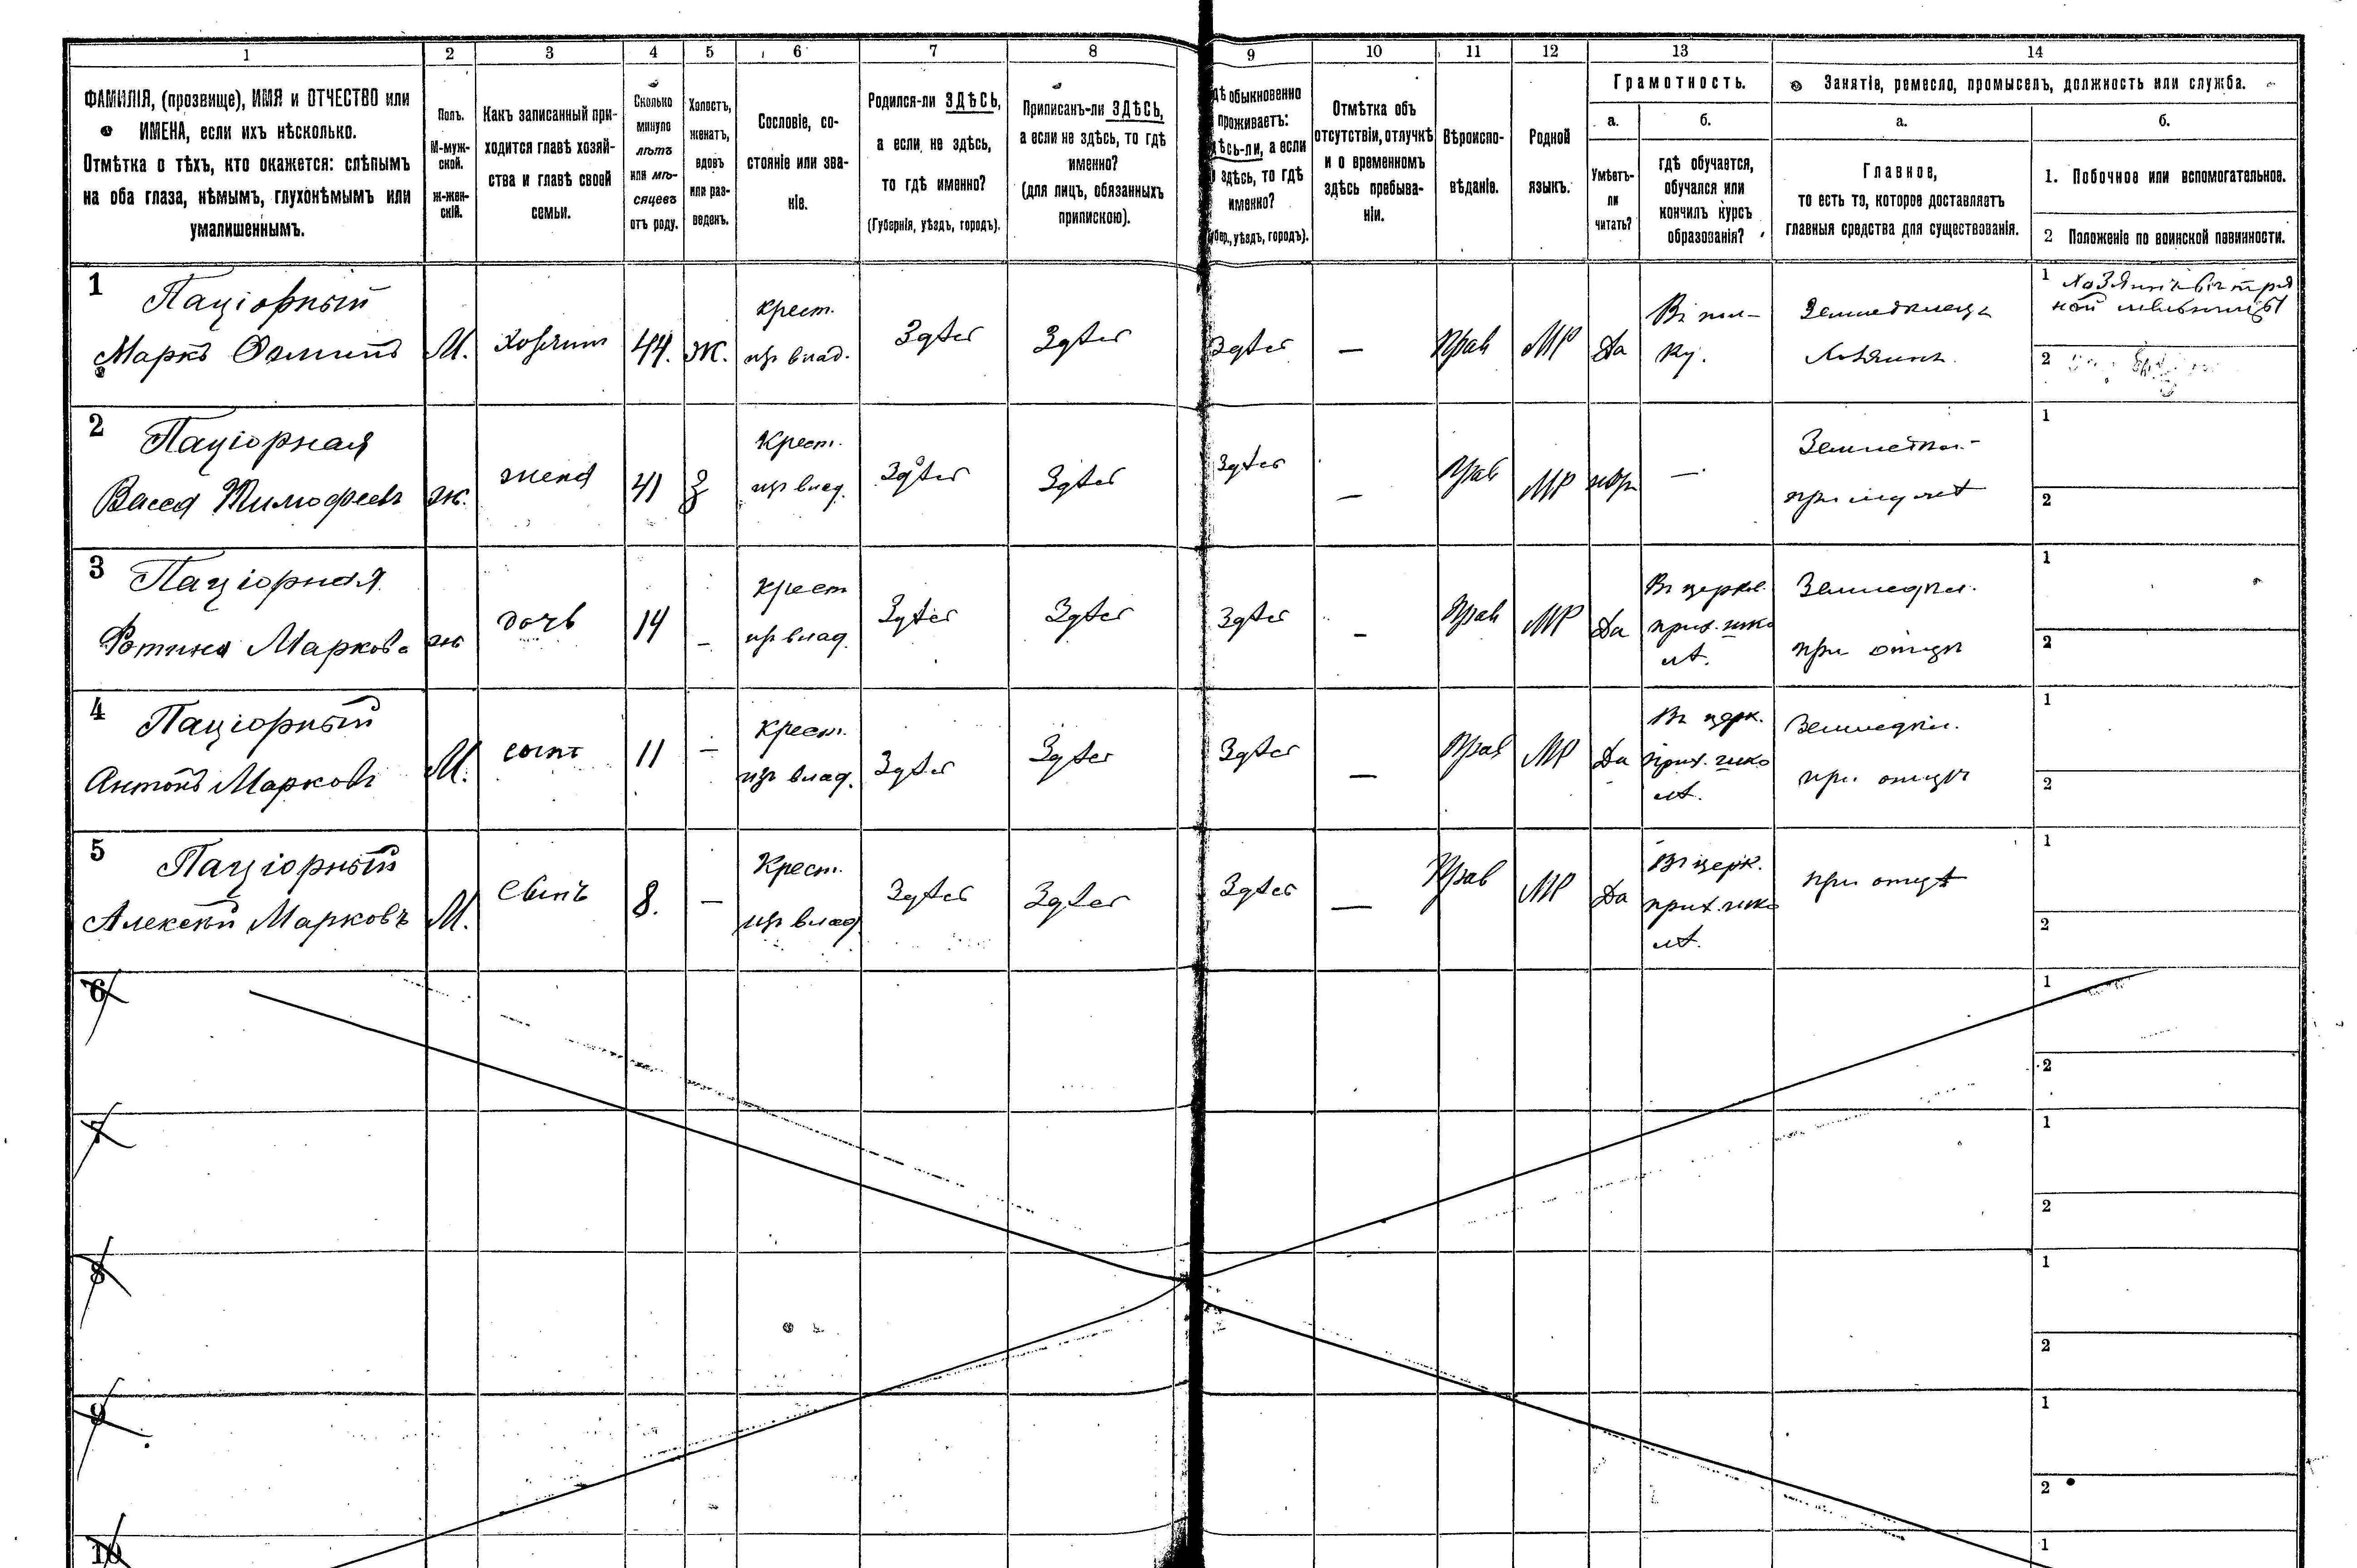 1 2 3 4 5 6 7 8 9 10 11 12 13 14
ФАМИЛІЯ, (прозвище), ИМЯ и ОТЧЕСТВО или
ИМЕНА, если ихъ нѣсколько.
Отмѣтка о тѣхъ, кто окажется: слѣпымъ
на оба глаза, нѣмымъ, глухонѣмымъ или
умалишеннымъ.
Полъ.
М-муж-
ской.
ж-жен-
скій.
Какъ записанный при-
ходится главѣ хозяй-
ства и главѣ своей
семьи.
Сколько
минуло
лѣтъ
или мѣ-
сяцевъ
отъ роду.
Холостъ,
женатъ,
вдовъ
или раз-
веденъ.
Сословіе, со-
стояніе или зва-
ніе.
Родился-ли ЗДѢСЬ,
а если не здѣсь,
то гдѣ именно?
(Губернія, уѣздъ, городъ).
Приписанъ-ли ЗДѢСЬ,
а если не здѣсь, то гдѣ
именно?
(для лицъ, обязанныхъ
припискою).
дѣ обыкновенно
проживаетъ:
дѣсь-ли, а если
здѣсь, то гдѣ
именно?
убер., уѣздъ, городъ).
Отмѣтка объ
отсутствіи, отлучкѣ
и о временномъ
здѣсь пребыва-
ніи.
Вѣроиспо-
вѣданіе.
Родной
языкъ.
Грамотность.
а.
Умѣетъ-
ли
читать?
б.
гдѣ обучается,
обучался или
кончилъ курсъ
образованія?
Занятіе, ремесло, промыселъ, должность или служба.
а.
Главное,
то есть то, которое доставляетъ
главныя средства для существованія.
б.
1. Побочное или вспомогательное.
2 Положеніе по воинской повинности.
1
Паціорный
Маркъ
М.
Хозяинъ
44.
Ж.
крест.
изъ влад.
Здѣсь
Здѣсь
Здѣсь
—
Прав
МР
Да
Въ пол-
ку.
Земледѣлецъ
Хозяинъ
1
2
2
Паціорная
Васса Тимофеевъ
ж.
жена
41
З
Крест.
изъ влад.
Здѣсь
Здѣсь
Здѣсь
—
Прав
МР
—
Земледѣл.
при мужѣ
1
2
3
Паціорная
Фотина Маркова
ж
дочь
14
—
крест
изъ влад.
Здѣсь
Здѣсь
Здѣсь
—
Прав
МР
Да
Въ церков.
прих. шко
лѣ.
Земледѣл.
при отцѣ
1
2
4
Паціорный
Антонъ Марковъ
М.
сынъ
11
—
крест.
изъ влад.
Здѣсь
Здѣсь
Здѣсь
—
Прав
МР
Да
Въ церк.
прих. шко
лѣ.
Земледѣл.
при отцѣ
1
2
5
Паціорный
Алексѣй Марковъ
М.
Сынъ
8.
—
Крест.
изъ влад
Здѣсь
Здѣсь
Здѣсь
—
Прав
МР
Да
Въ церк.
прих. шко
лѣ.
при отцѣ
1
2
6
1
2
7
1
2
8
1
2
9
1
2
10
1